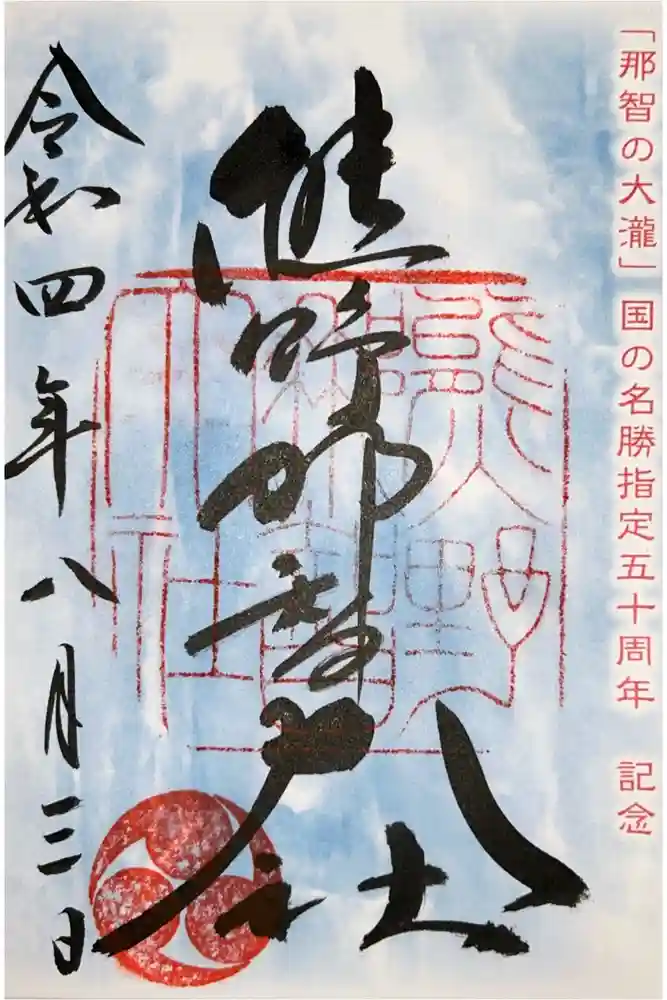 「那智の大瀧」国の名勝指定五十周年 記念
熊野那智大社
令和四年八月三日